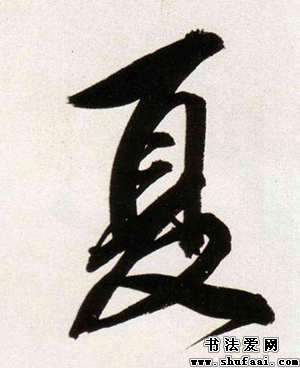 夏
书法爱网
www.shufaai.com